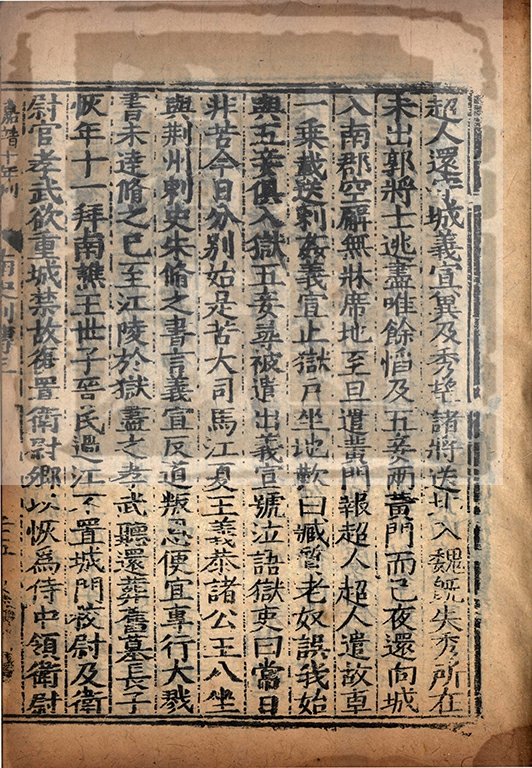 超人還守城義宣冀及秀望諸將送北入魏既失秀所在
未出郭將士逃盡唯餘慆及五妾兩黃門而已夜還向城
入南郡空廨無牀席地至旦遣黃門報超人超人遣故車
一乘載送刺姦義宣止獄戶坐地歎曰臧質老奴誤我始
與五妾俱入獄五妾尋被遣出義宣號泣語獄吏曰常日
非苦今日分別始是苦大司馬江夏王義恭諸公王八坐
與荆州刺史朱脩之書言義宣反道叛恩便宜專行大戮
書未達脩之已至江陵於獄盡之孝武聽還葬舊墓長子
恢年十一拜南譙王世子晉氏過江不置城門校尉及衛
尉官孝武欲重城禁故復置衛尉卿以恢為侍中領衛尉
嘉靖十年刊 南史列傳三